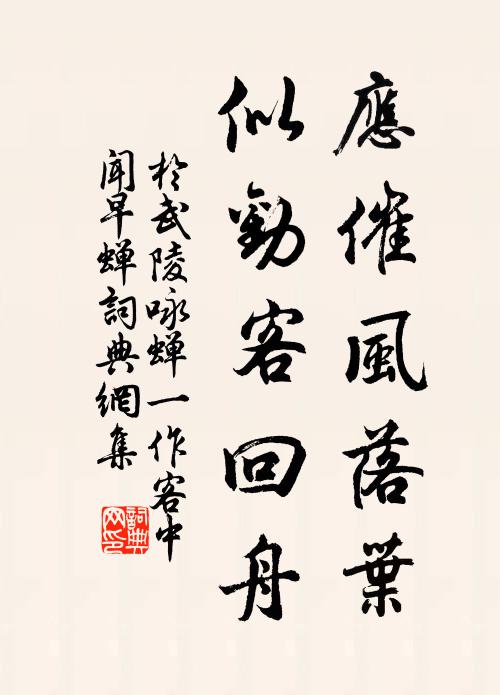 應催風落葉
似勸客回舟
於武陵咏蟬一作客中
聞早蟬詞典網集
詞典
网印